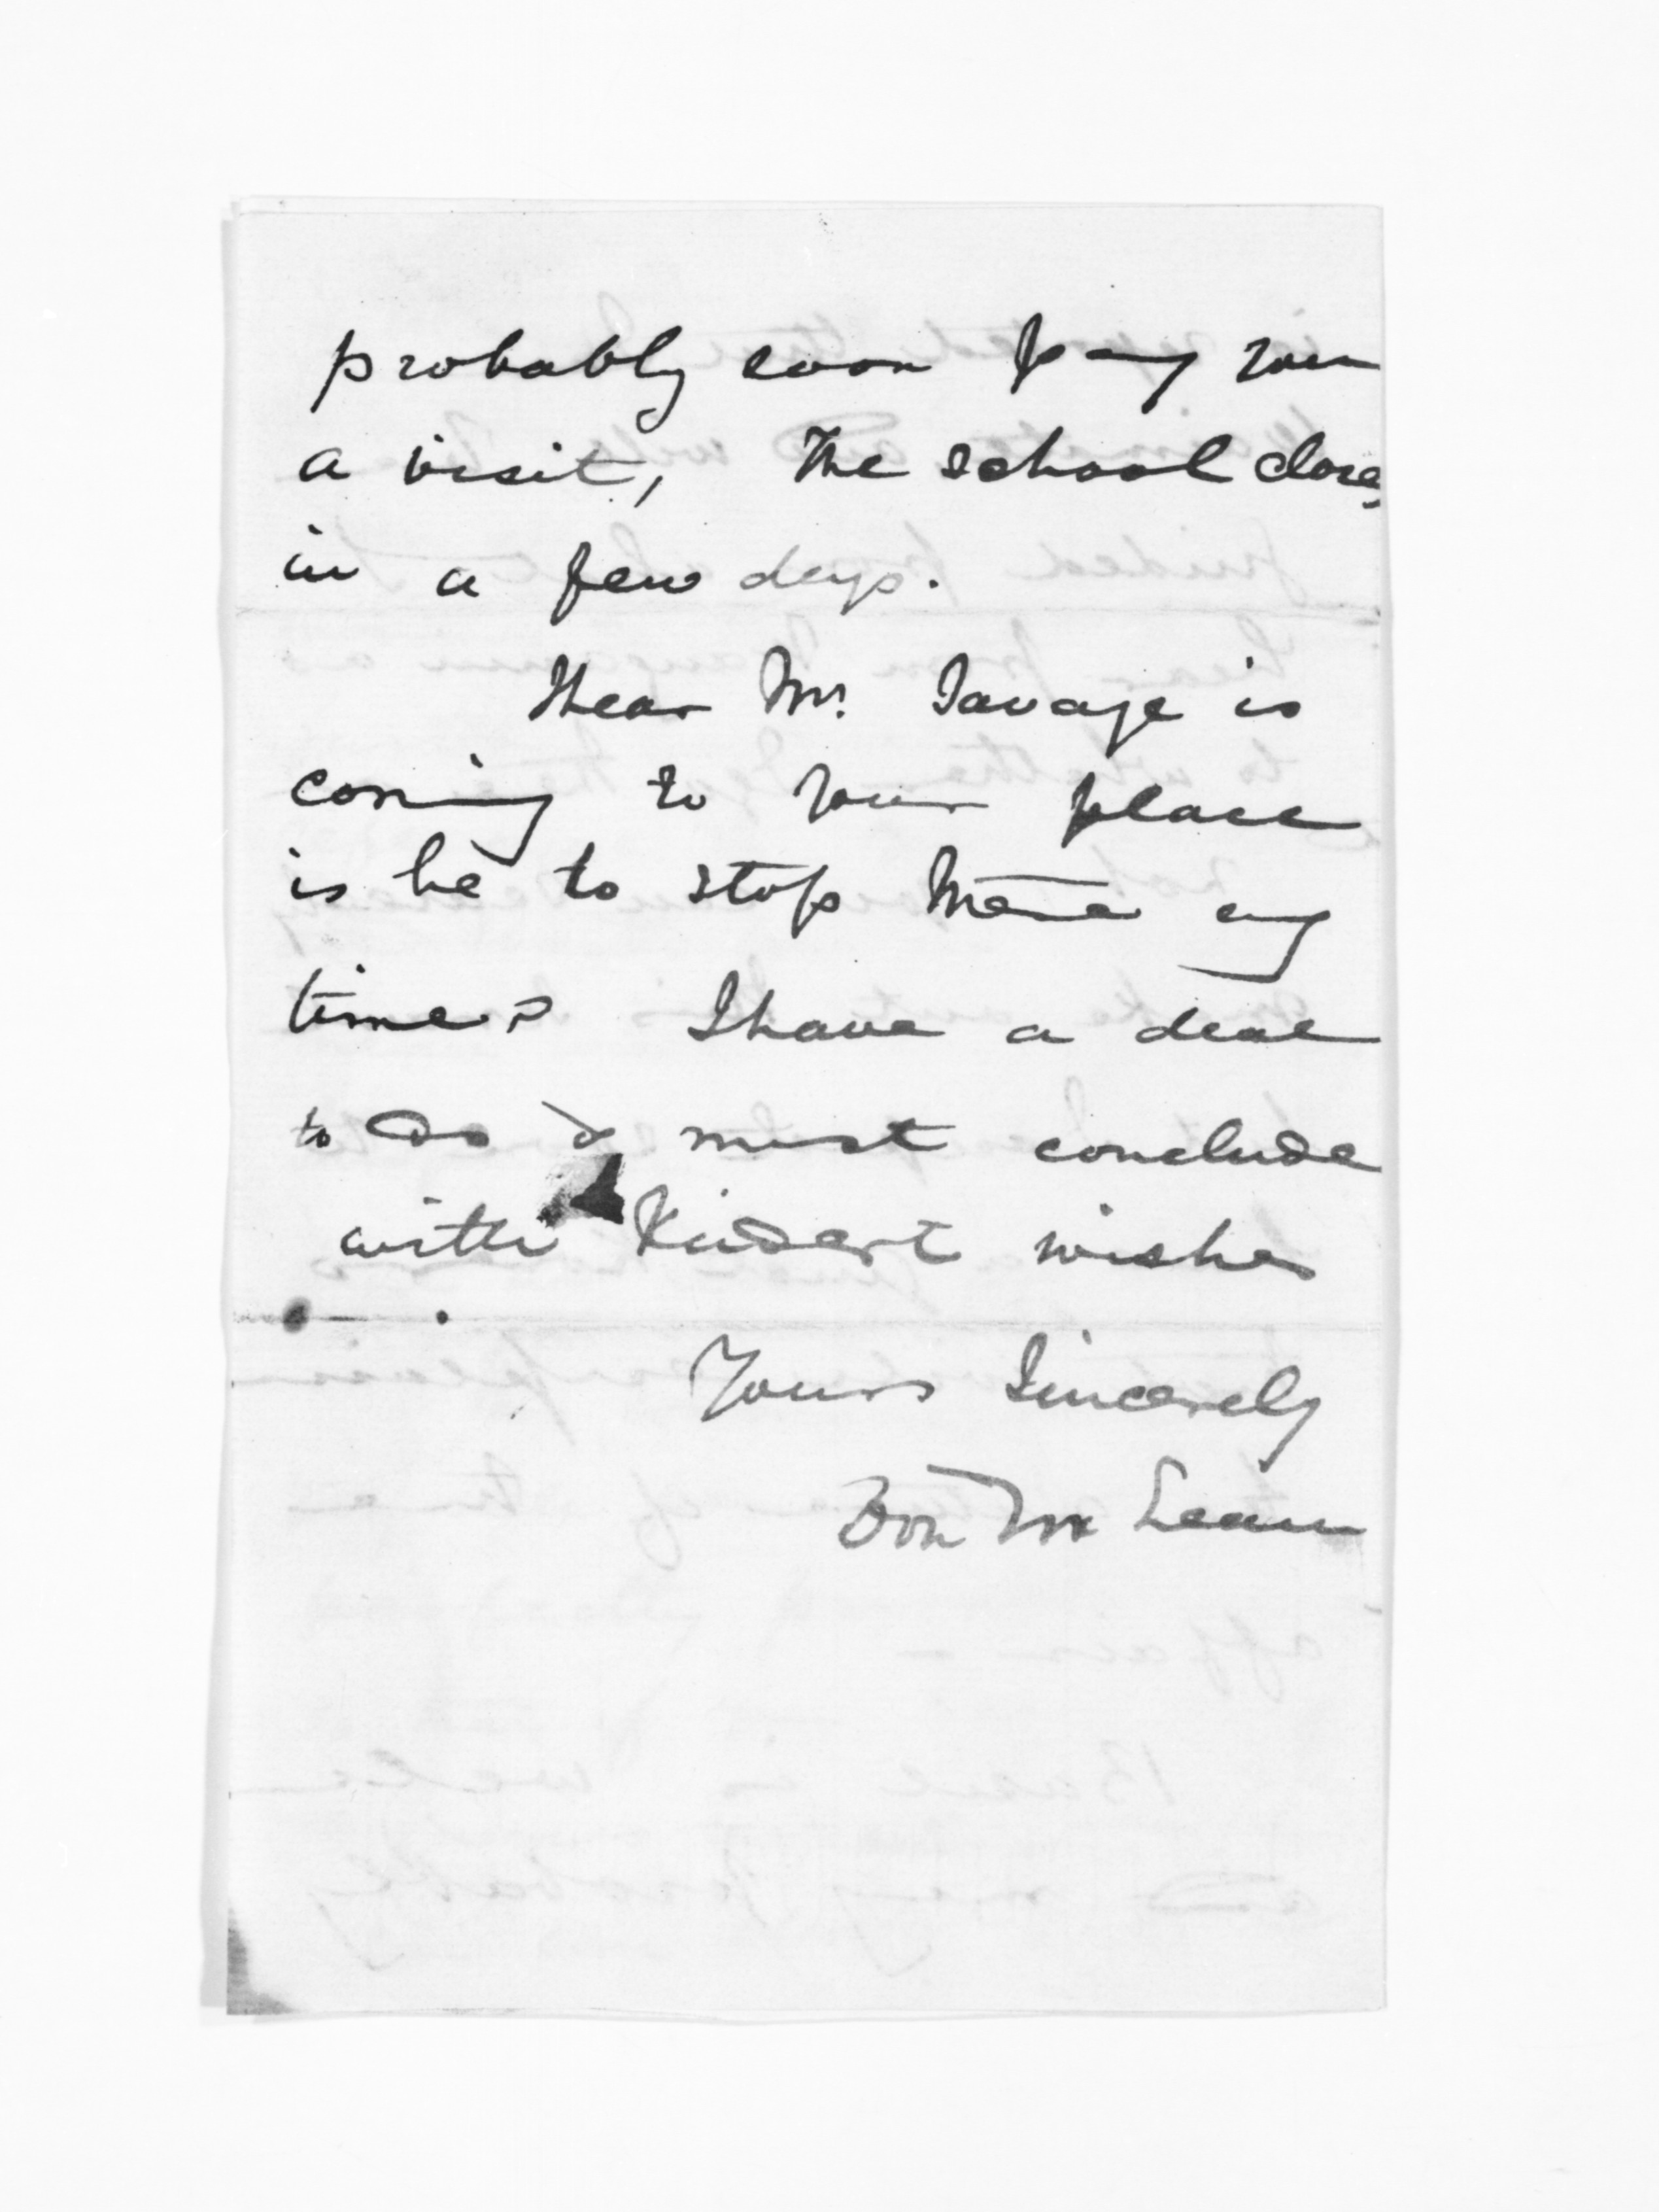 probably soon pay you
a visit, The school closes
in a few days.
I hear Mr. Savage is
coming to your place
is he to stop there any
time? I have a deal
to do & must conclude
with Kindest wishes
Yours Sincerely
Don McLean